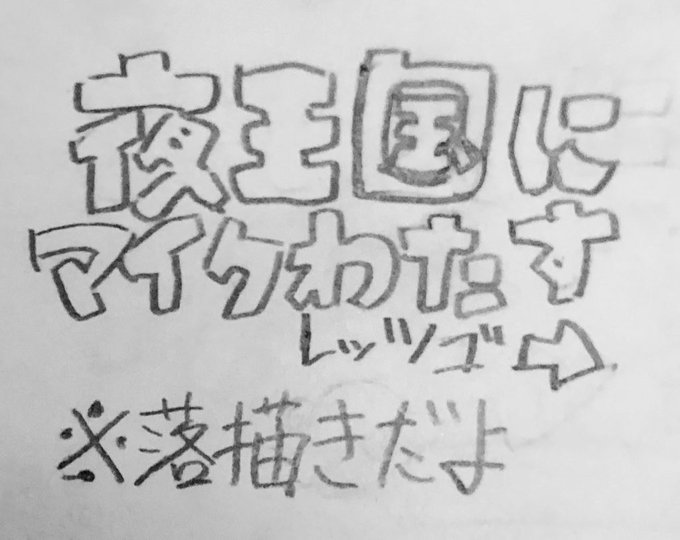 夜王国に
マイクわたす
レッツゴ➡
※落描きだよ